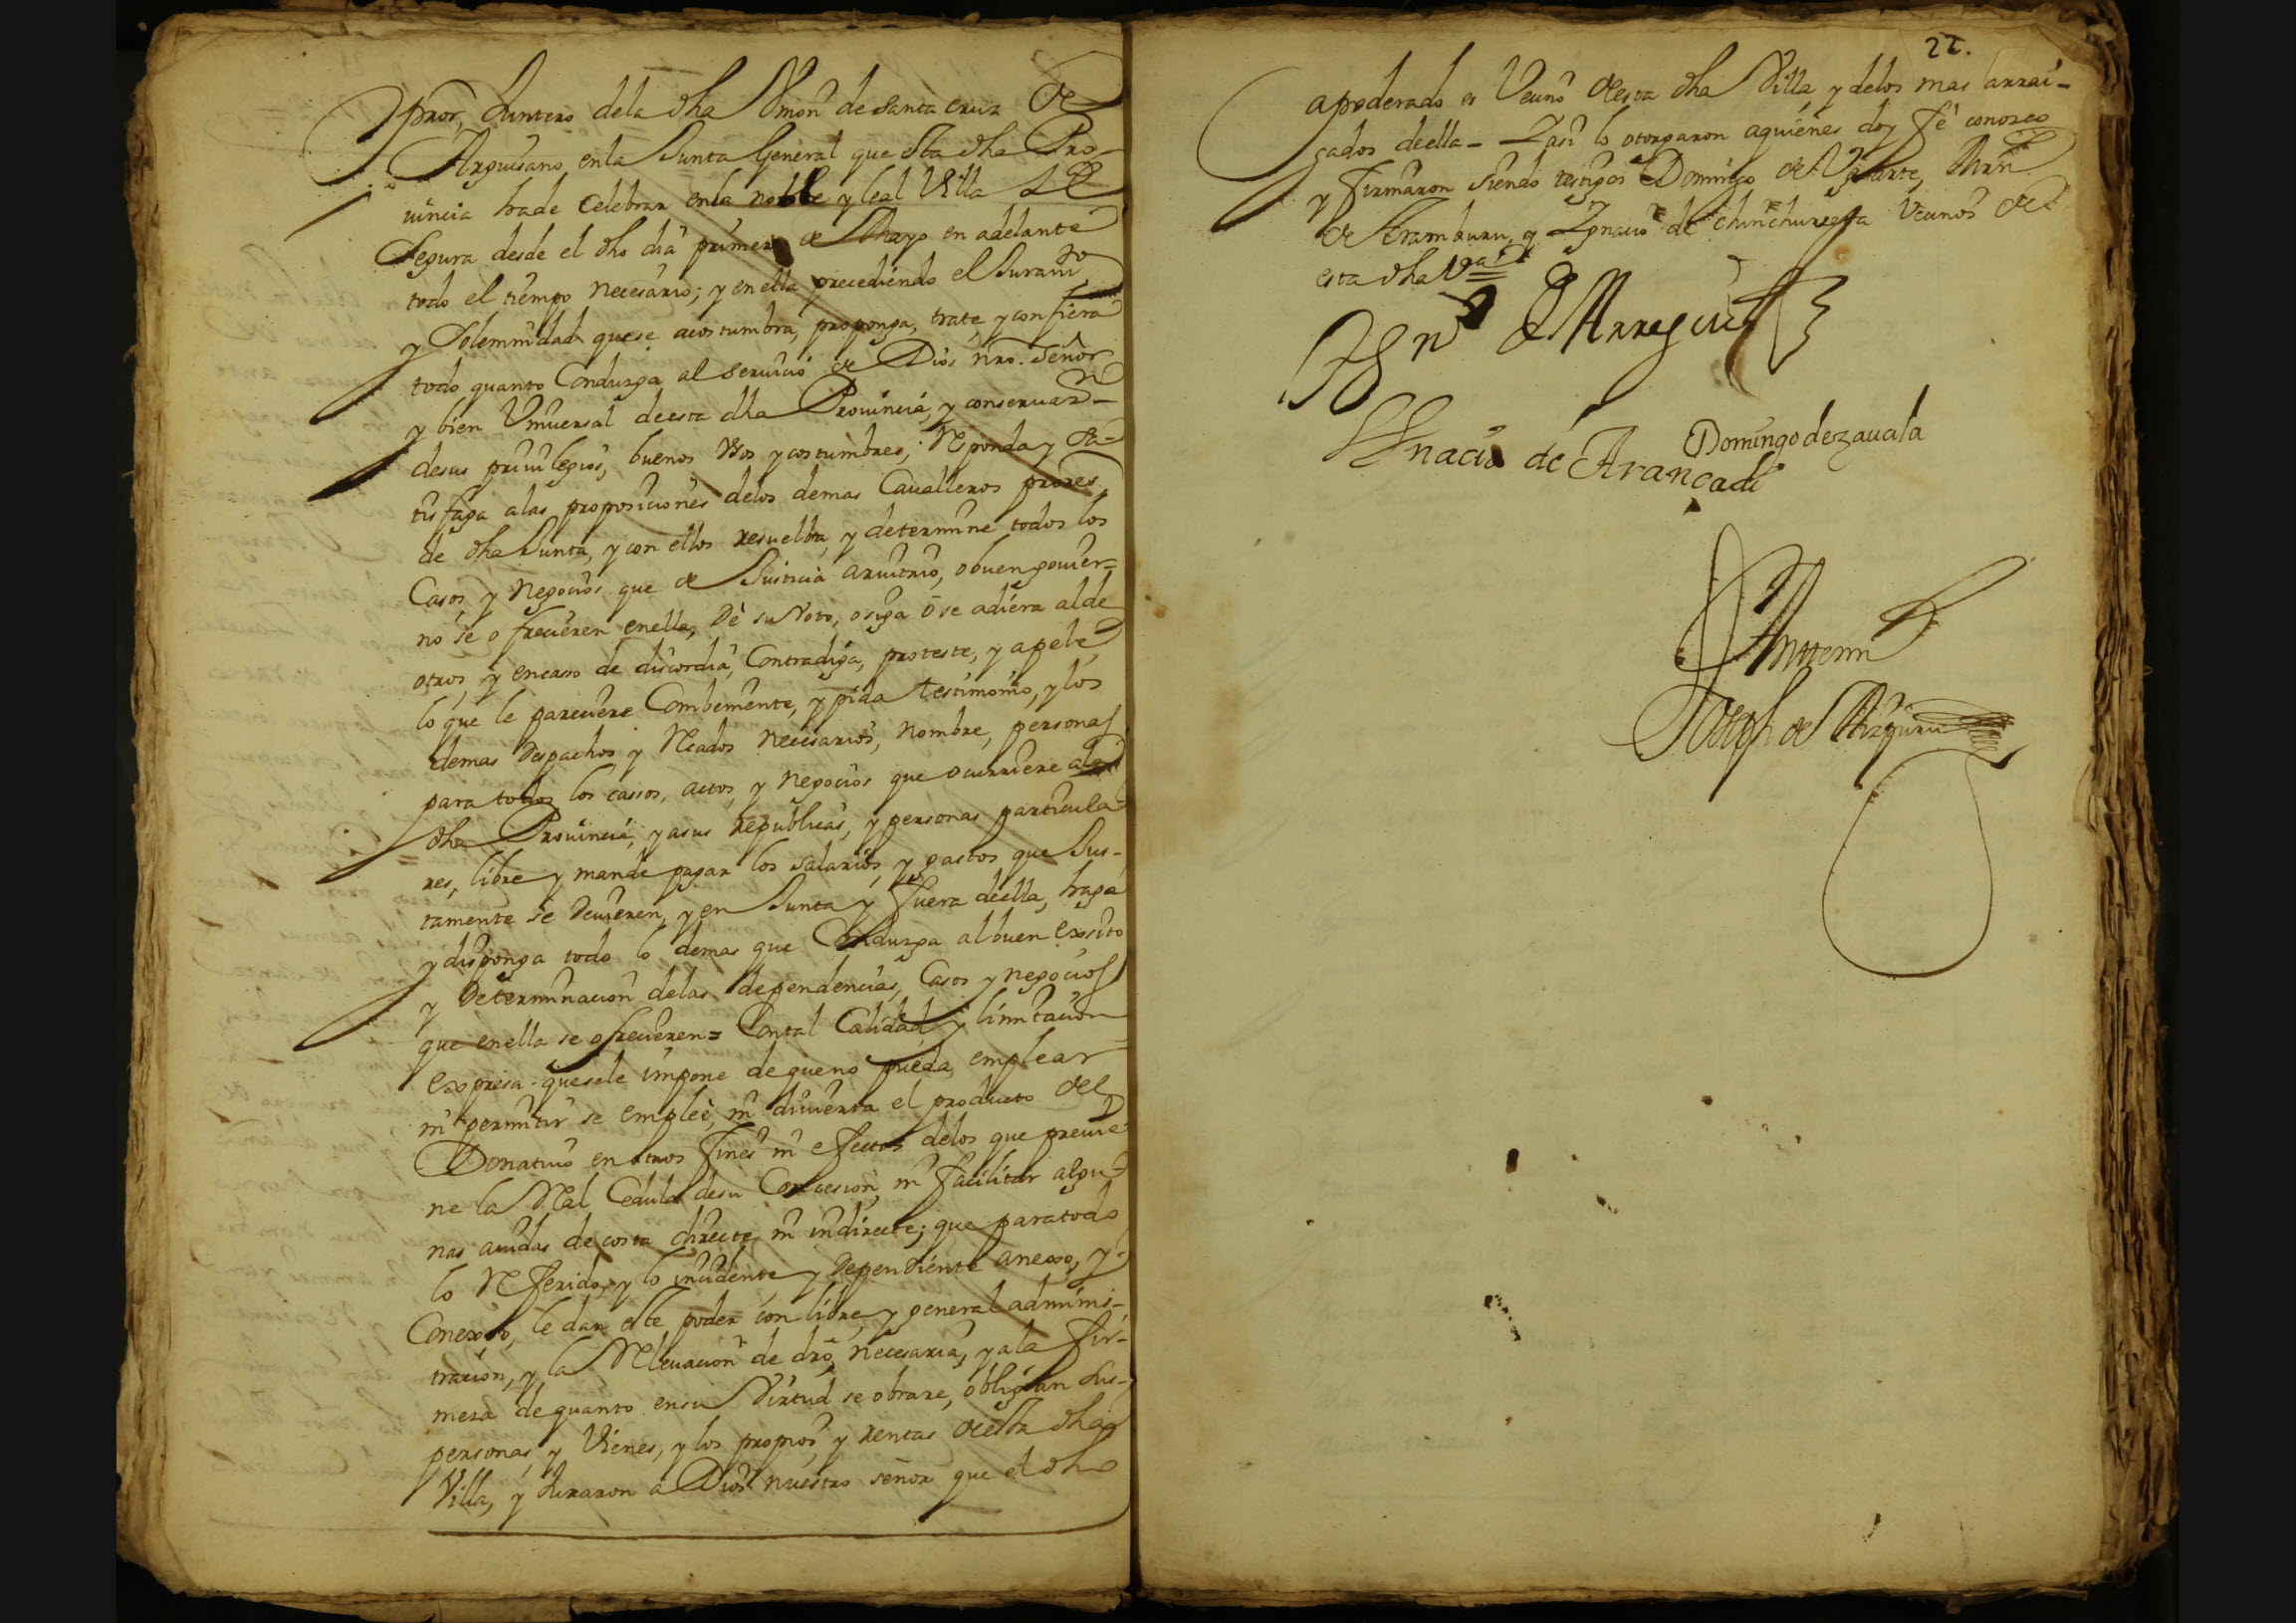 pror, Juntero dela dha Vnion de Santa cruz de
Arguisano, enla Junta General que esta dha Pro-
uincia hade Celebrar enla noble y leal Villa de
Segura desde el dho dia primero de Mayo en adelante
todo el tiempo necesario; y enella precediendo el Juramto
y Solemnidad quese acostumbra, proponga, trate, y confiera
todo quanto Conduzga al seruicio de Dios nro. Señor
y bien Vniuersal deesta dha Prouincia, y conseruaon
desus priuilegios, buenos Vsos y costumbres; Responda y sa-
tisfaga alas proposiciones delos demas Caualleros prores,
de dha Junta, y con ellos resuelba, y determine todos los
Casos, y Negocios, que de Justicia aruitrio, o buen gouier=
no se ofrecieren enella, Dè su Voto, o siga ò se adiera alde
otros, y encaso de discordia, Contradiga, proteste, y apele,
lo que le pareciere Combeniente, y pida testimonio, y los
demas Despachos y Rcados necesarios, nombre, personas
para todos los cassos, actos, y negocios que ocurriere ala
dha Prouincia, y asus Republicas, y personas particula-
res, libre y mande pagar los salarios, y gastos que Jus-
tamente se deuieren, y en Junta y fuera deella, haga
y disponga todo lo demas que Conduzga albuen exsito
y Determinacion delas dependencias, Casos y negocios
que enella se ofrecieren = Contal Calidad, y limitacion
expresa quesele impone de queno pueda emplear
ni permitir se empleè, ni diuierta el producto del
Donatiuo en otros fines ni efectos delos que preuie
ne la Real Cedula desu Concesion, ni facilitar algu-
nas aiudas de costa directe, ni indirecte; que paratodo
lo Referido, y lo incidente, y Dependiente anexo, y
Conexso, le dan este poder con libre, y general admini-
tracion, y la Releuacion de dro, necesaria, y ala fir-
meza de quanto ensu Virtud se obrare, obligan Sus
personas, y Vienes, y los propios y rentas deesta dha
Villa, y Juraron a Dios nuestro señor que el dho
22.
apoderado es Vecino deesta dha Villa, y delos mas arrai-
gados deella - Y asi lo otorgaron aquienes doy fè conozco
y firmaron Siendo testigos Domingo de Vgarte, Mrn
de Aramburu, y Ygnacio de chinchurreta Vecinos de
esta dha Va
de Arregui
Ygnacio de Arançadi
Domingo dezauala
Antemi
Joseph de Aizpuru